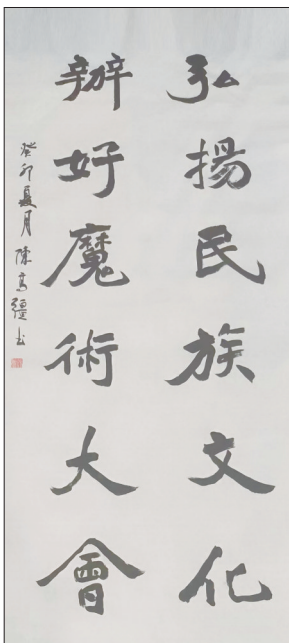 弘揚民族文化
辦好魔術大會
癸卯夏月陳高疆书